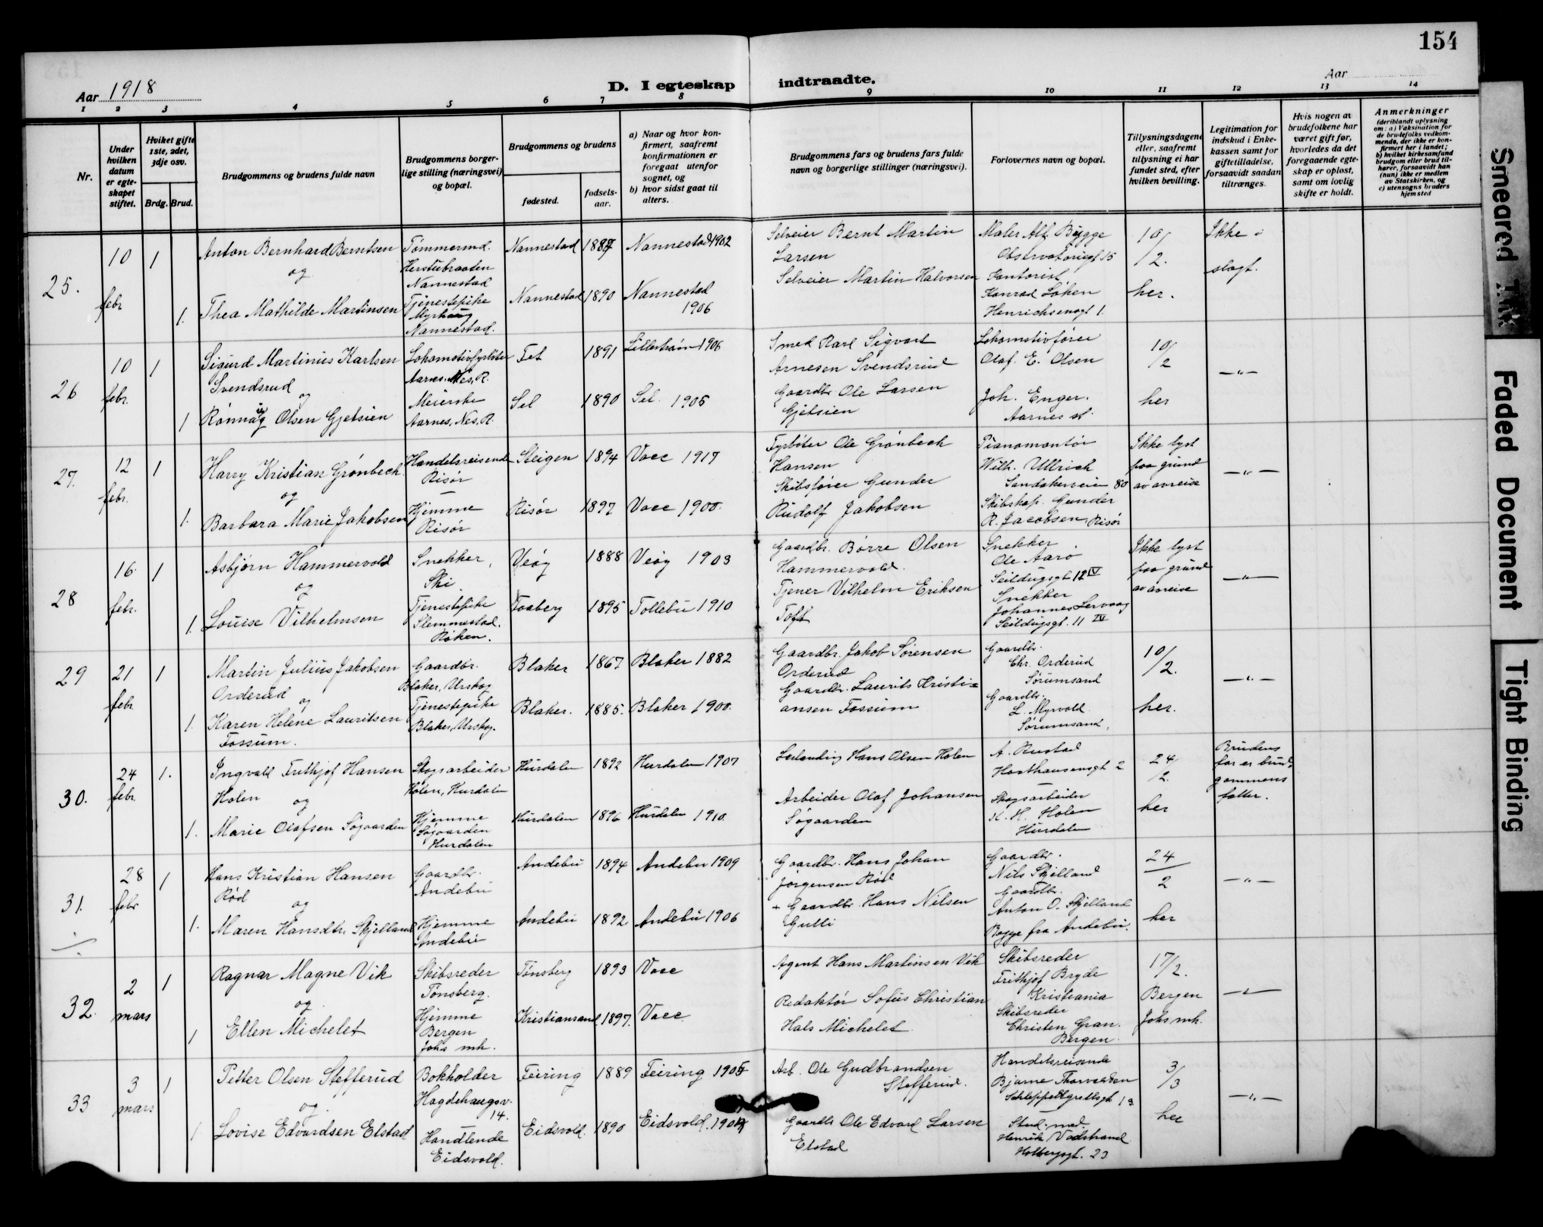 154
Aar 1918
D. I egteskap indtraadte.
Aar
1 2 3 4 5 6 7 8 9 10 11 12 13 14
Nr.
Under hvilken datum er egteskapet stiftet.
Hvilket gifte 1ste, 2det, 3dje osv.
Brdg. Brud.
Brudgommens og brudens fulde navn
Brudgommens borgerlige stilling (næringsvei) og bopæl.
Brudgommens og brudens
fødested.
fødselsaar.
a) Naar og hvor konfirmert, saafremt konfirmationen er foregaat utenfor sognet, og
b) hvor sidst gaat til alters.
Brudgommens fars og brudens fars fulde navn og borgerlige stillinger (næringsvei).
Forlovernes navn og bopæl.
Tillysningsdagene eller, saafremt tillysning ei har fundet sted, efter hvilken bevilling.
Legitimation for indskud i Enkekassen samt for giftetilladelse, forsaavidt saadan tiltrænges.
Hvis nogen av brudefolkene har været gift før, hvorledes da det foregaaende egteskap er opløst, samt om lovlig skifte er holdt.
Anmerkninger
25. 10 febr 1 1.
Anton Bernhard Berntsen
og
Thea Mathilde Martinsen
Tømmermd.
Nannestad
Tjenestepike
Nannestad.
Nannestad 1887 Nannestad 1902
Nannestad 1890 Nannestad 1906
Selveier Bernt Martin Larsen
Selveier Martin Halvorsen
Maler Alf Bygge
Observatoriegt 15
Kontorist
Konrad Løken
Henrichsensgt 1.
10/2. her.
Ikke slagt.
26 10 febr. 1 1
Sigurd Martinius Karlsen
Svendsrud
og
Rønnaug Olsen Gjetsien
Lokomotivfyrbøter
Aarnes, Nes, R.
Meierske
Aarnes, Nes, R.
Fet 1891 Lillestrøm 1906
Sel 1890 Sel. 1905
Smed Karl Sigvart
Arnesen Svendsrud
Gaardbr. Ole Larsen
Gjetsien
Lokomotivfører
Olaf E. Olsen
Joh. Enger.
Aarnes st.
10/2 her
—"—
27. 12 febr. 1 1.
Harry Kristian Grønbech
og
Barbara Marie Jakobsen
Handelsreisende
Risør
Hjemme
Risør
Steigen 1894 Vacc 1917
Risør 1897 Vacc 1900.
Fyrbøter Ole Grønbech
Hansen
Skibsfører Gunder
Rudolf Jakobsen
Pianomontør
Wilh. Ullrich
Sandakerveien 80
Skibskap. Gunder
R. Jacobsen, Risør
Ikke lyst
paa grund
av avreise
—"—
28 16 febr. 1 1.
Asbjørn Hammervold
og
Louise Vilhelmsen
Snekker,
Ski
Tjenestepike
Slemmestad.
Røken.
Veøy 1888 Veøy 1903
Faaberg 1895 Follebu 1910
Gaardbr. Børre Olsen
Hammervold.
Tjener Vilhelm Eriksen
Toft
Snekker
Ole Aarø
Seildugsgt 12 IV
Snekker
Johannes Lervaag
Seildugsgt. 11 IV
Ikke lyst
paa grund
av avreise
—"—
29 21 febr 1 1.
Martin Julius Jakobsen
Orderud
og
Karen Helene Lauritsen
Fossum.
Gaardbr.
Blaker, Urskog
Tjenestepike
Blaker, Urskog.
Blaker 1867 Blaker 1882
Blaker. 1885. Blaker 1900.
Gaardbr. Jakob Sørensen
Orderud
Gaardbr. Laurits Kristi=
ansen Fossum
Gaardbr.
Chr. Orderud
Sørumsand
Gaardbr.
L. Myrvold
Sørumsand.
10/2. her.
—"—
30. 24 febr. 1. 1.
Ingvald Frithjof Hansen
Holen
og
Marie Olafsen Søgaarden
Skogsarbeider
Holen, Hurdalen
Hjemme
Søgaarden
Hurdalen
Hurdalen 1892 Hurdalen 1907
Hurdalen 1896 Hurdalen 1910.
Hans Olsen Holen
Arbeider Olaf Johansen
Søgaarden
A. Rustad
2
Skogsarbeider
H. Holen
Hurdalen
24/2 her
Brudens
far er brud-
gommens
fetter.
31. 28 febr 1 1.
Hans Kristian Hansen
Rød
og
Maren Hansdtr. Skjelland
Gaardbr.
Andebu
Hjemme
Andebu
Andebu 1894 Andebu 1909
Andebu 1892 Andebu 1906
Gaardbr. Hans Johan
Jørgensen Rød
Gaardbr Hans Nilsen
Gulli
Gaardbr.
Nils Skjelland
Gaardbr.
Anton O. Skjelland
Begge fra Andebu.
24/2 her
—"—
32. 2 mars 1 1
Ragnar Magne Vik
og
Ellen Michelet
Skibsreder
Tønsberg.
Hjemme
Bergen
Johs mh.
Tønsberg 1893 Vacc
Kristiansand 1897. Vacc.
Agent Hans Martinsen Vik
Redaktør Sofus Christian
Hals Michelet
Skibsreder
Frithjof Bryde
Kristiania
Skibsreder
Christen Gran.
Bergen.
17/2.
Bergen
Johs mh.
—"—
33 3 mars 1 1
Petter Olsen Stefferud
og
Lovise Edvardsen Elstad
Bokholder
Hagdehaugsv.
14.
Handlende
Eidsvold.
Feiring 1889 Feiring 1905
Eidsvold. 1890 Eidsvold. 1904
Arb. Ole Gudbrandsen
Stefferud.
Gaardbr Ole Edvard Larsen
Elstad
Handelsreisende
Bjarne Thorvaldsen
13
Stud. med.
Henrik Vadstrand
Holbergsgt. 23
3/3 her
—"—
Smeared Ink
Faded Document
Tight Binding